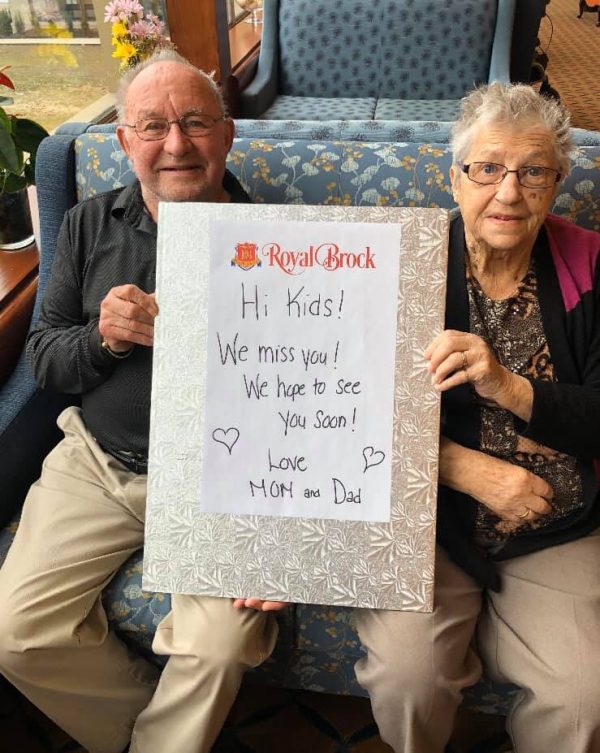 Royal Brock
Hi Kids!
We miss you!
We hope to see
you soon!
Love
MOM and Dad